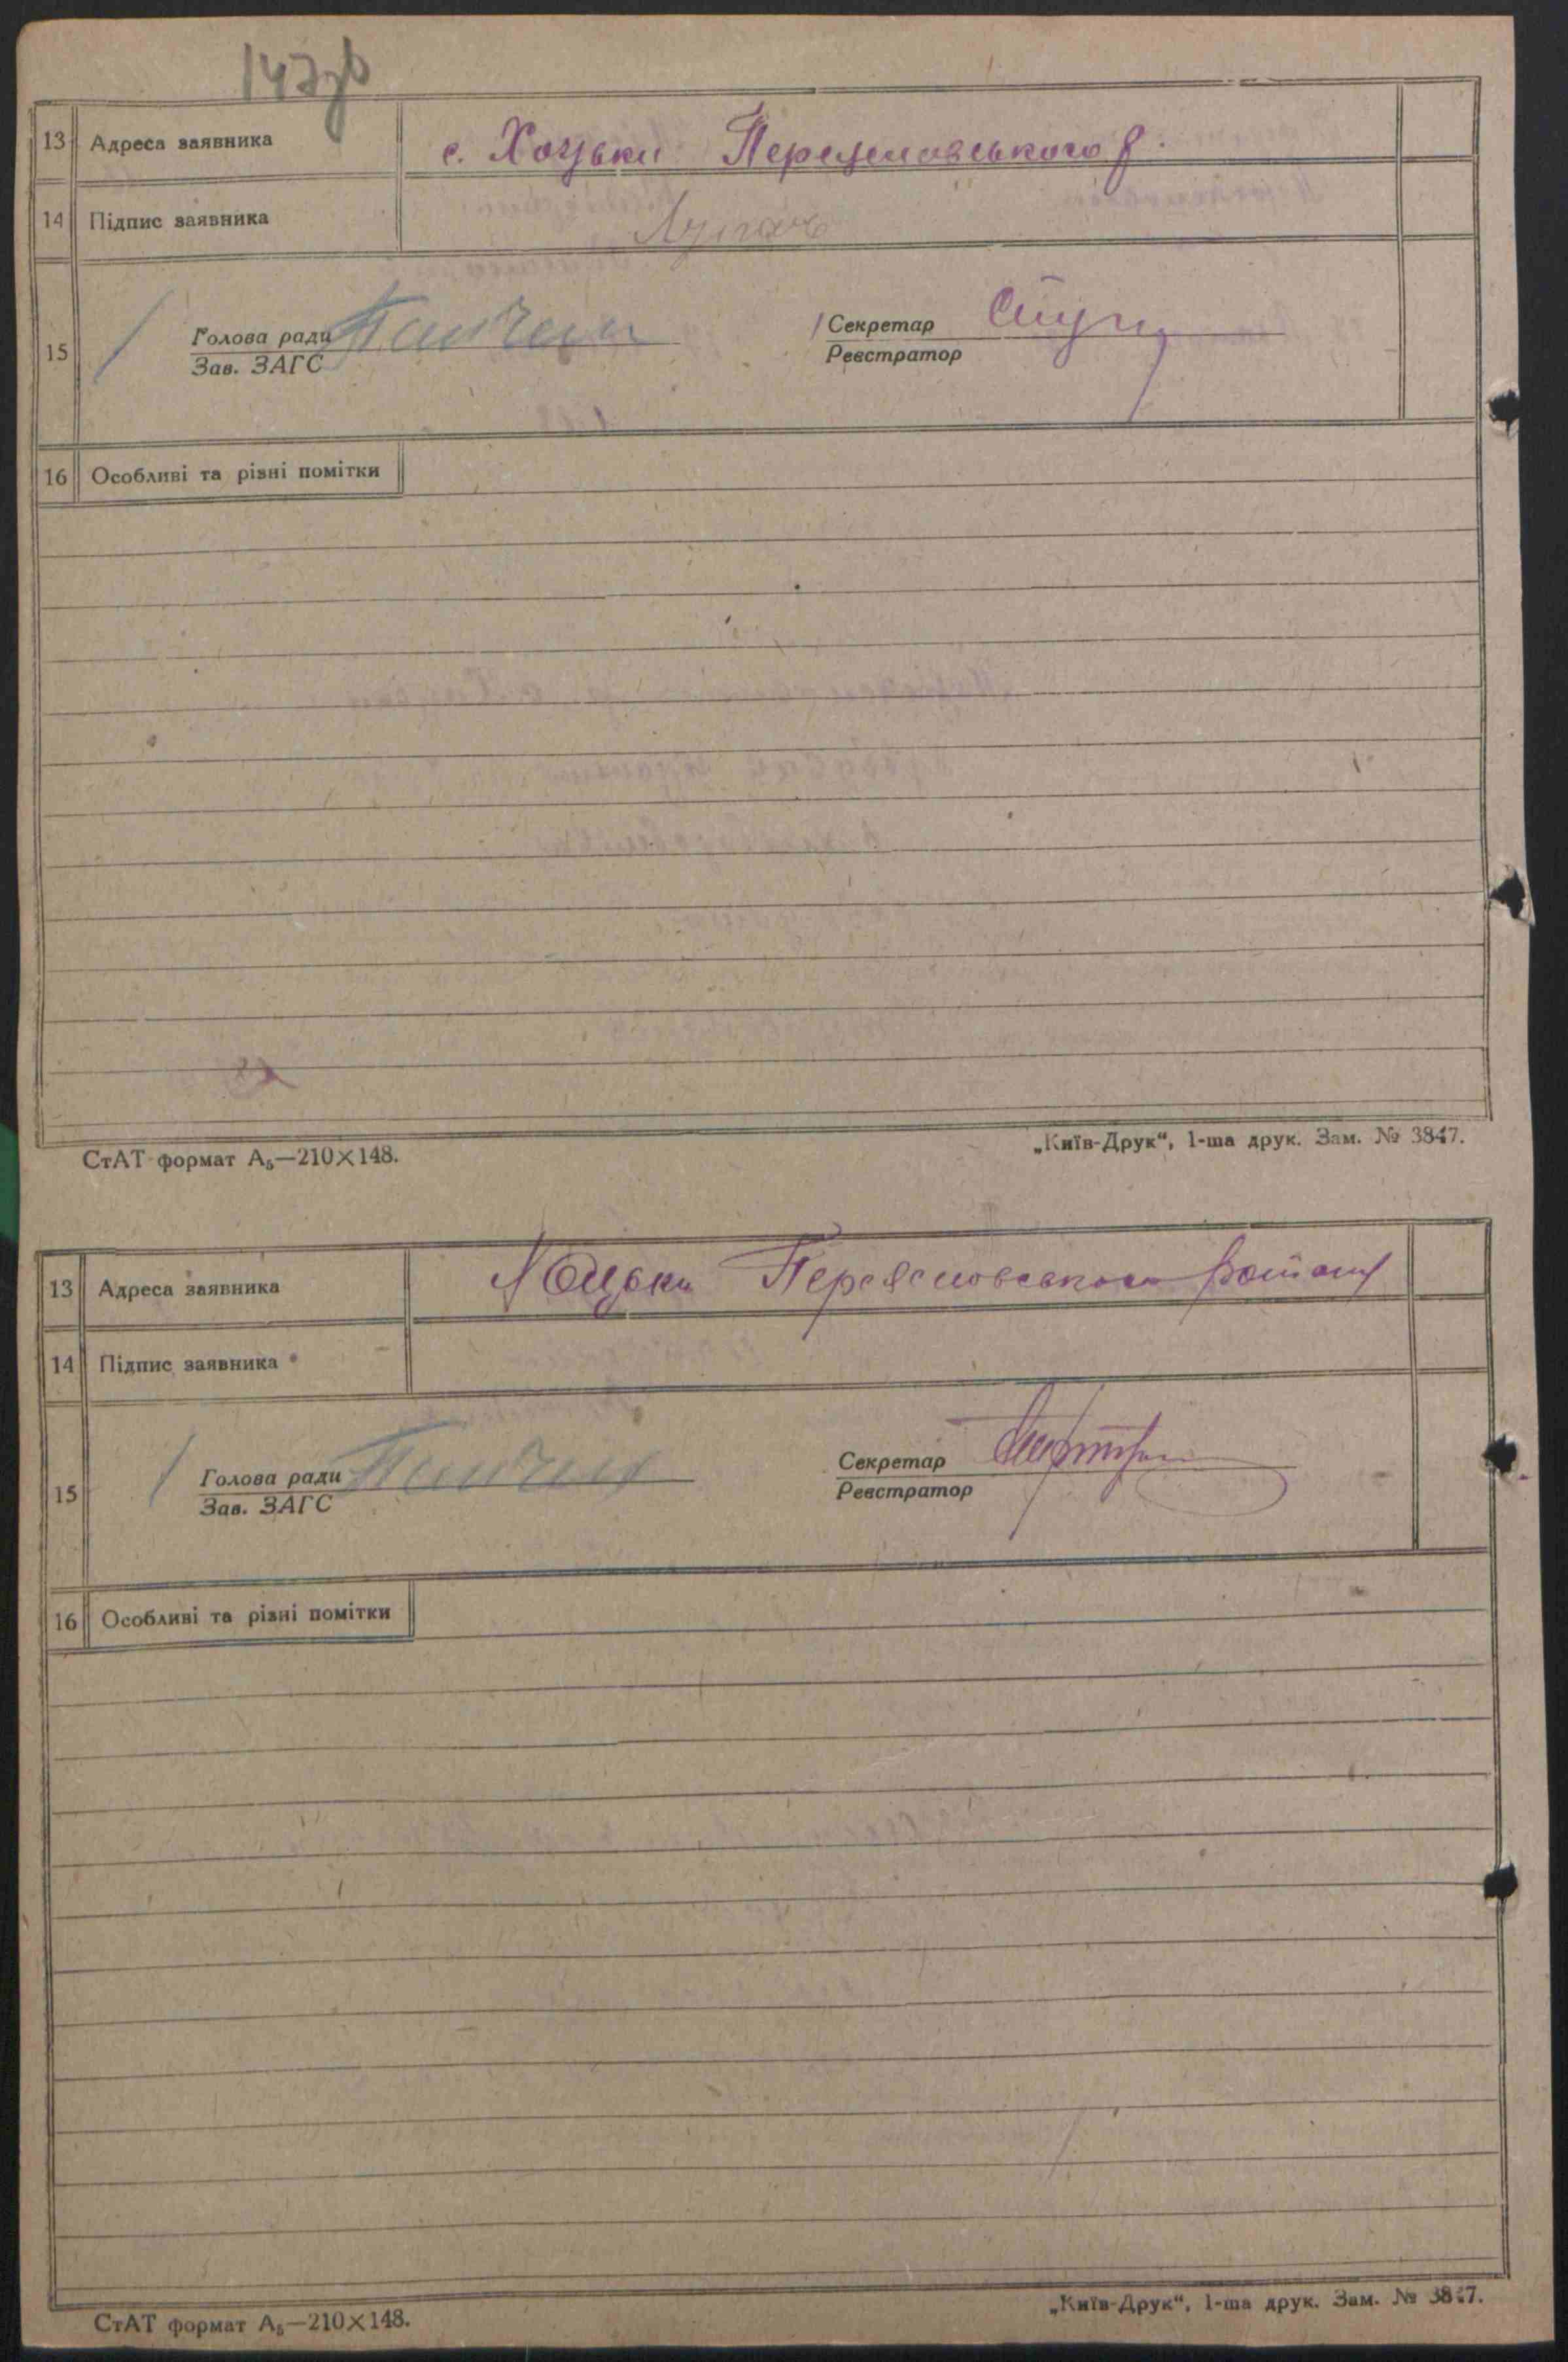 147зв
13 Адреса заявника с. Хоцьки Переяславського р.
14 Підпис заявника
15 Голова ради Секретар
Зав. ЗАГС Реєстратор
16 Особливі та різні помітки
СтАТ формат А₅—210×148. „Київ-Друк“, 1-ша друк. Зам. № 3847.
13 Адреса заявника Хоцьки Переяславського району
14 Підпис заявника
15 Голова ради Секретар
Зав. ЗАГС Реєстратор
16 Особливі та різні помітки
СтАТ формат А₅—210×148. „Київ-Друк“, 1-ша друк. Зам. № 3847.